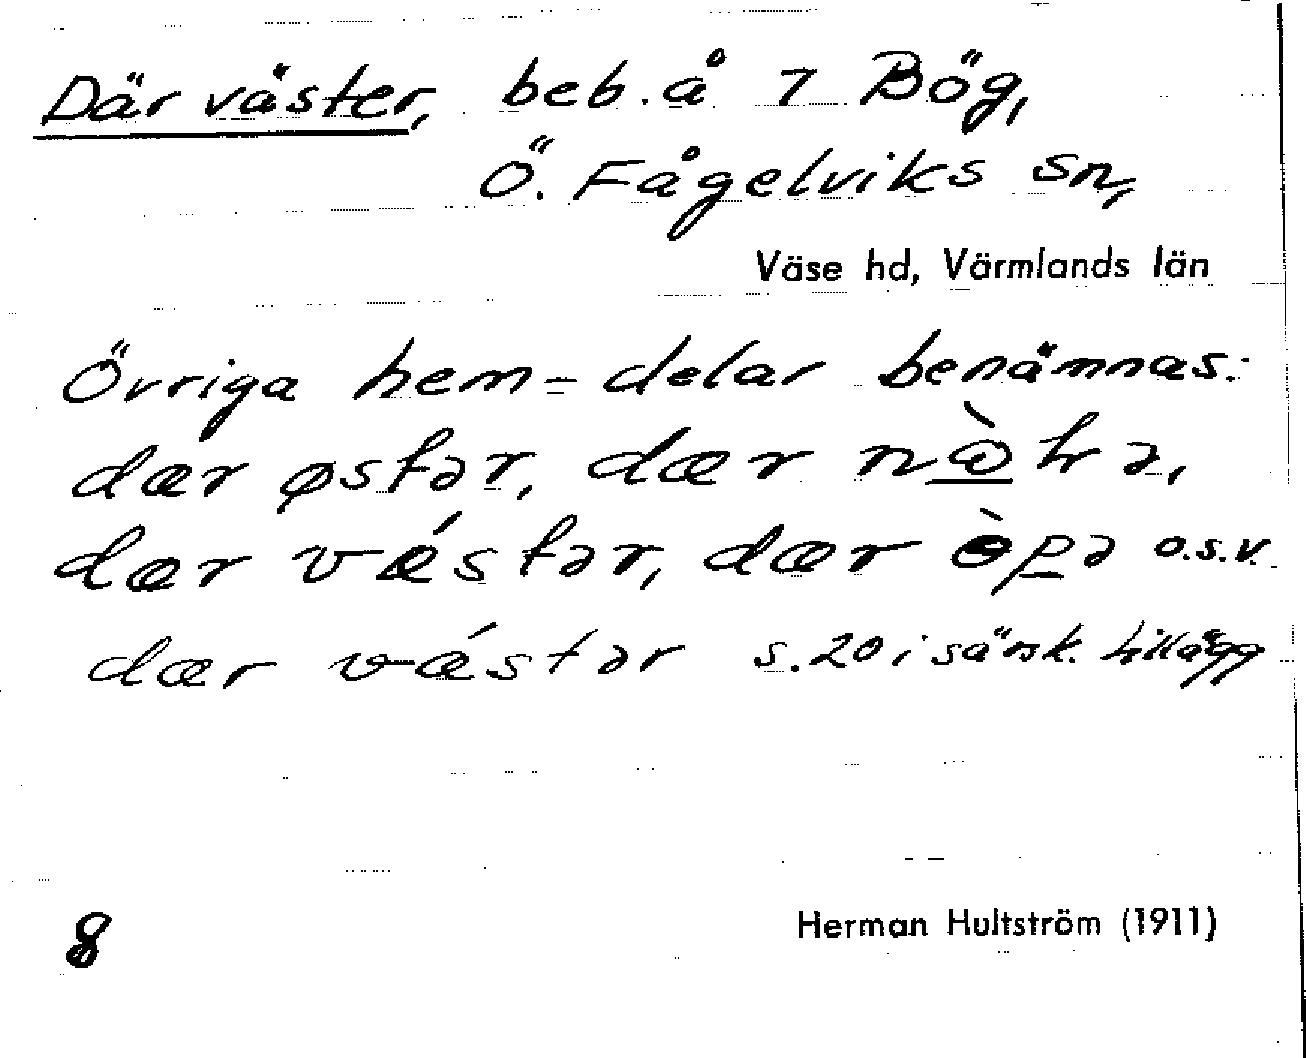 Där väster, beb. å 7 Bög,
Ö. Fågelviks sn,
Väse hd, Värmlands län
Övriga hem=delar benämnas:
dær østər, dær nὼtrə,
dær vǽstər, dær òpə o.s.v.
dær vǽstər s. 20 i särsk. tillägg
8
Herman Hultström (1911)